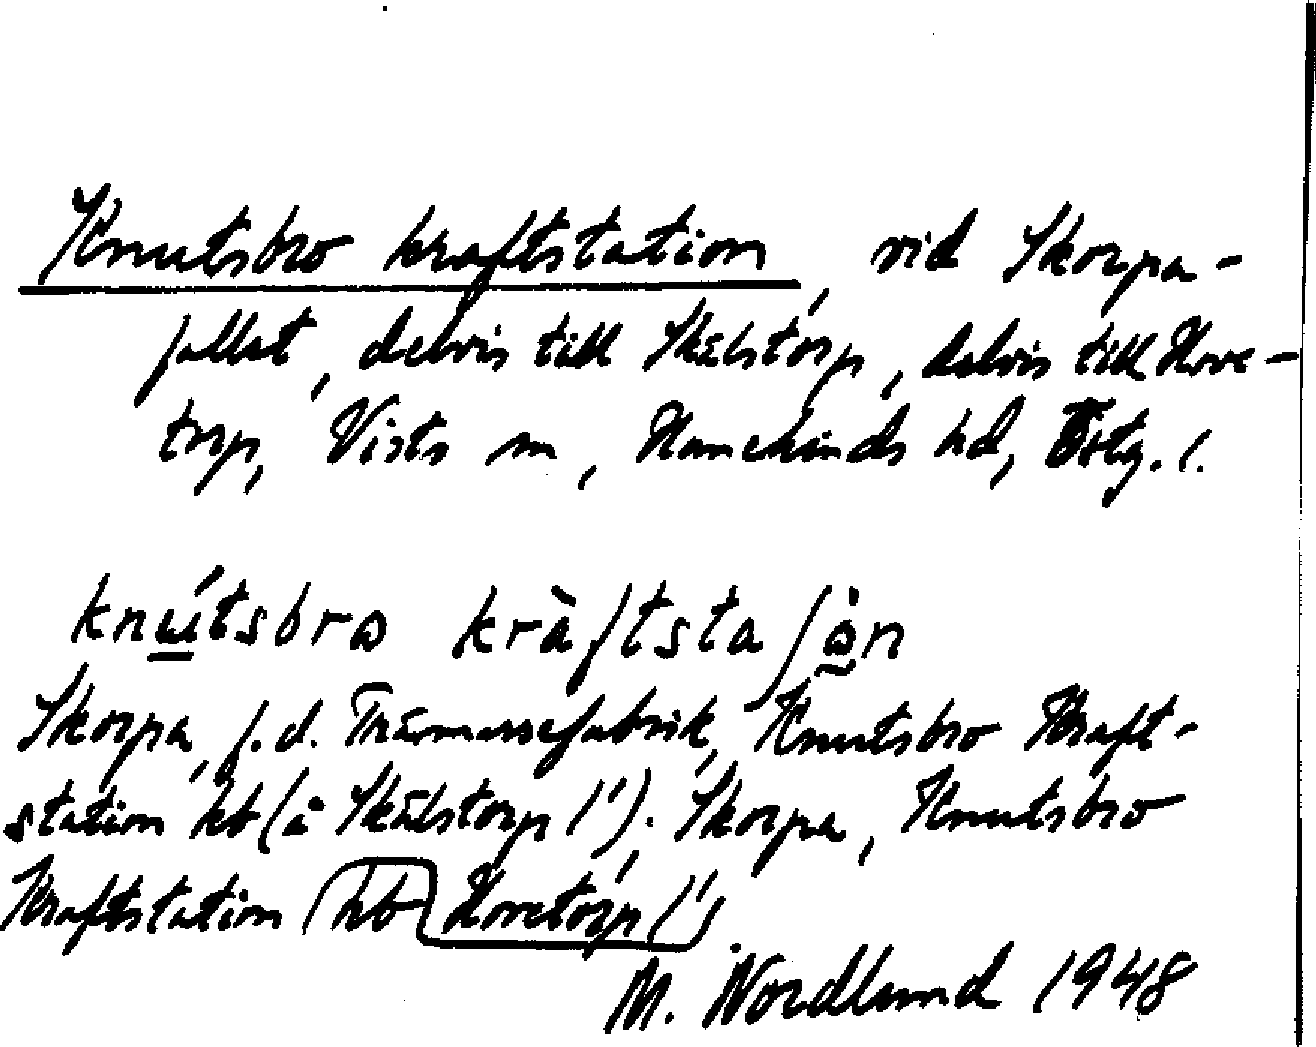 Knutsbro kraftstation, vid Skorpa-
fallet, delvis till Skälstorp, delvis till Hove-
torp, Vists sn, Hanekinds hd, Östg. l.
knú̲tsbro kràftstaʃo̰̊n
Skorpa, f.d. Trämassefabrik, Knutsbro Kraft-
station hb (å Skälstorp 1'); Skorpa, Knutsbro
Kraftstation (hb Hovetorp 1')
M. Nordlund 1948